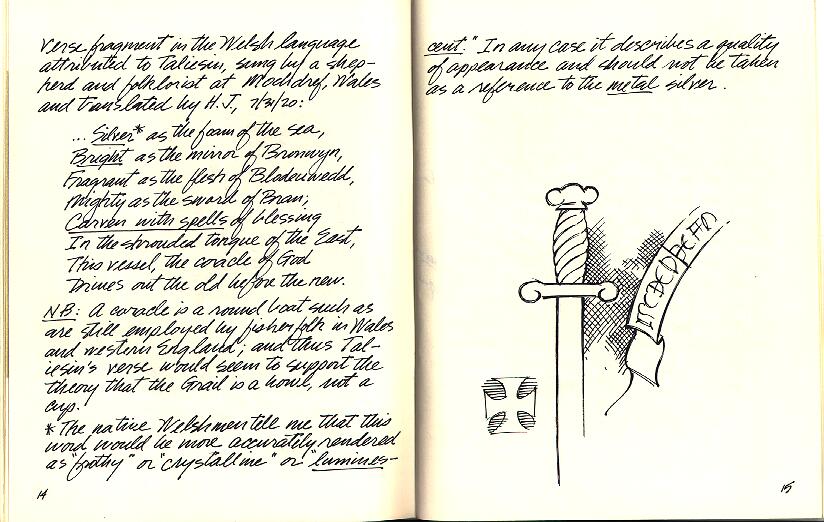 verse fragment in the Welsh language
attributed to Taliesin, sung by a shep-
herd and folklorist at Mochdref, Wales
and translated by H.J., 7/31/20:
... Silver* as the foam of the sea,
Bright as the mirror of Bronwyn,
Fragrant as the flesh of Blodenwedd,
Mighty as the sword of Bran;
Carven with spells of blessing
In the shrouded tongue of the East,
This vessel, the coracle of God
Drives out the old before the new.
N.B.: A coracle is a round boat such as
are still employed by fisherfolk in Wales
and western England; and thus Tal-
iesin's verse would seem to support the
theory that the Grail is a bowl, not a
cup.
* The native Welshmen tell me that this
word would be more accurately rendered
as "frothy" or "crystalline" or "lumines-
14
cent." In any case it describes a quality
of appearance and should not be taken
as a reference to the metal silver.
15